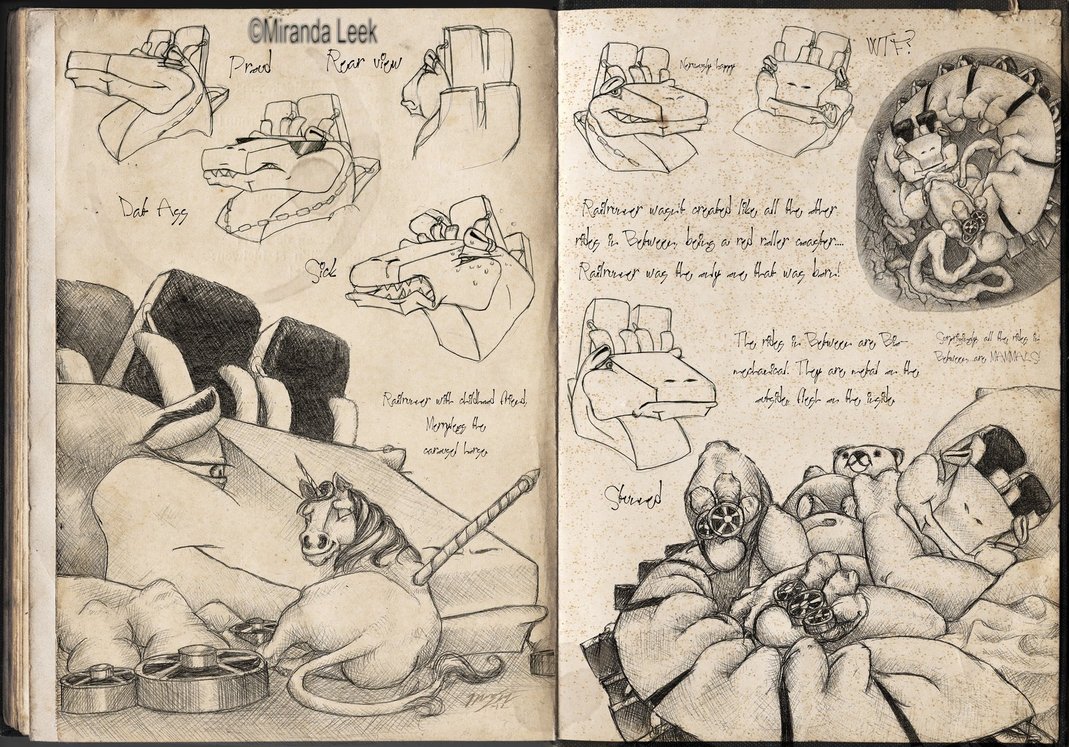 ©Miranda Leek
Proud
Rear view
Dat Ass
Sick
Railrunner with childhood friend,
Merrylegs the
carousel horse.
Nervously happy
WTF?
Railrunner wasn't created like all the other
rides in Between, being a red roller coaster....
Railrunner was the only one that was born!
The rides in Between are Bio-
mechanical. They are metal on the
outside, flesh on the inside.
Surprisingly, all the rides in
Between are MAMMALS!
Stunned